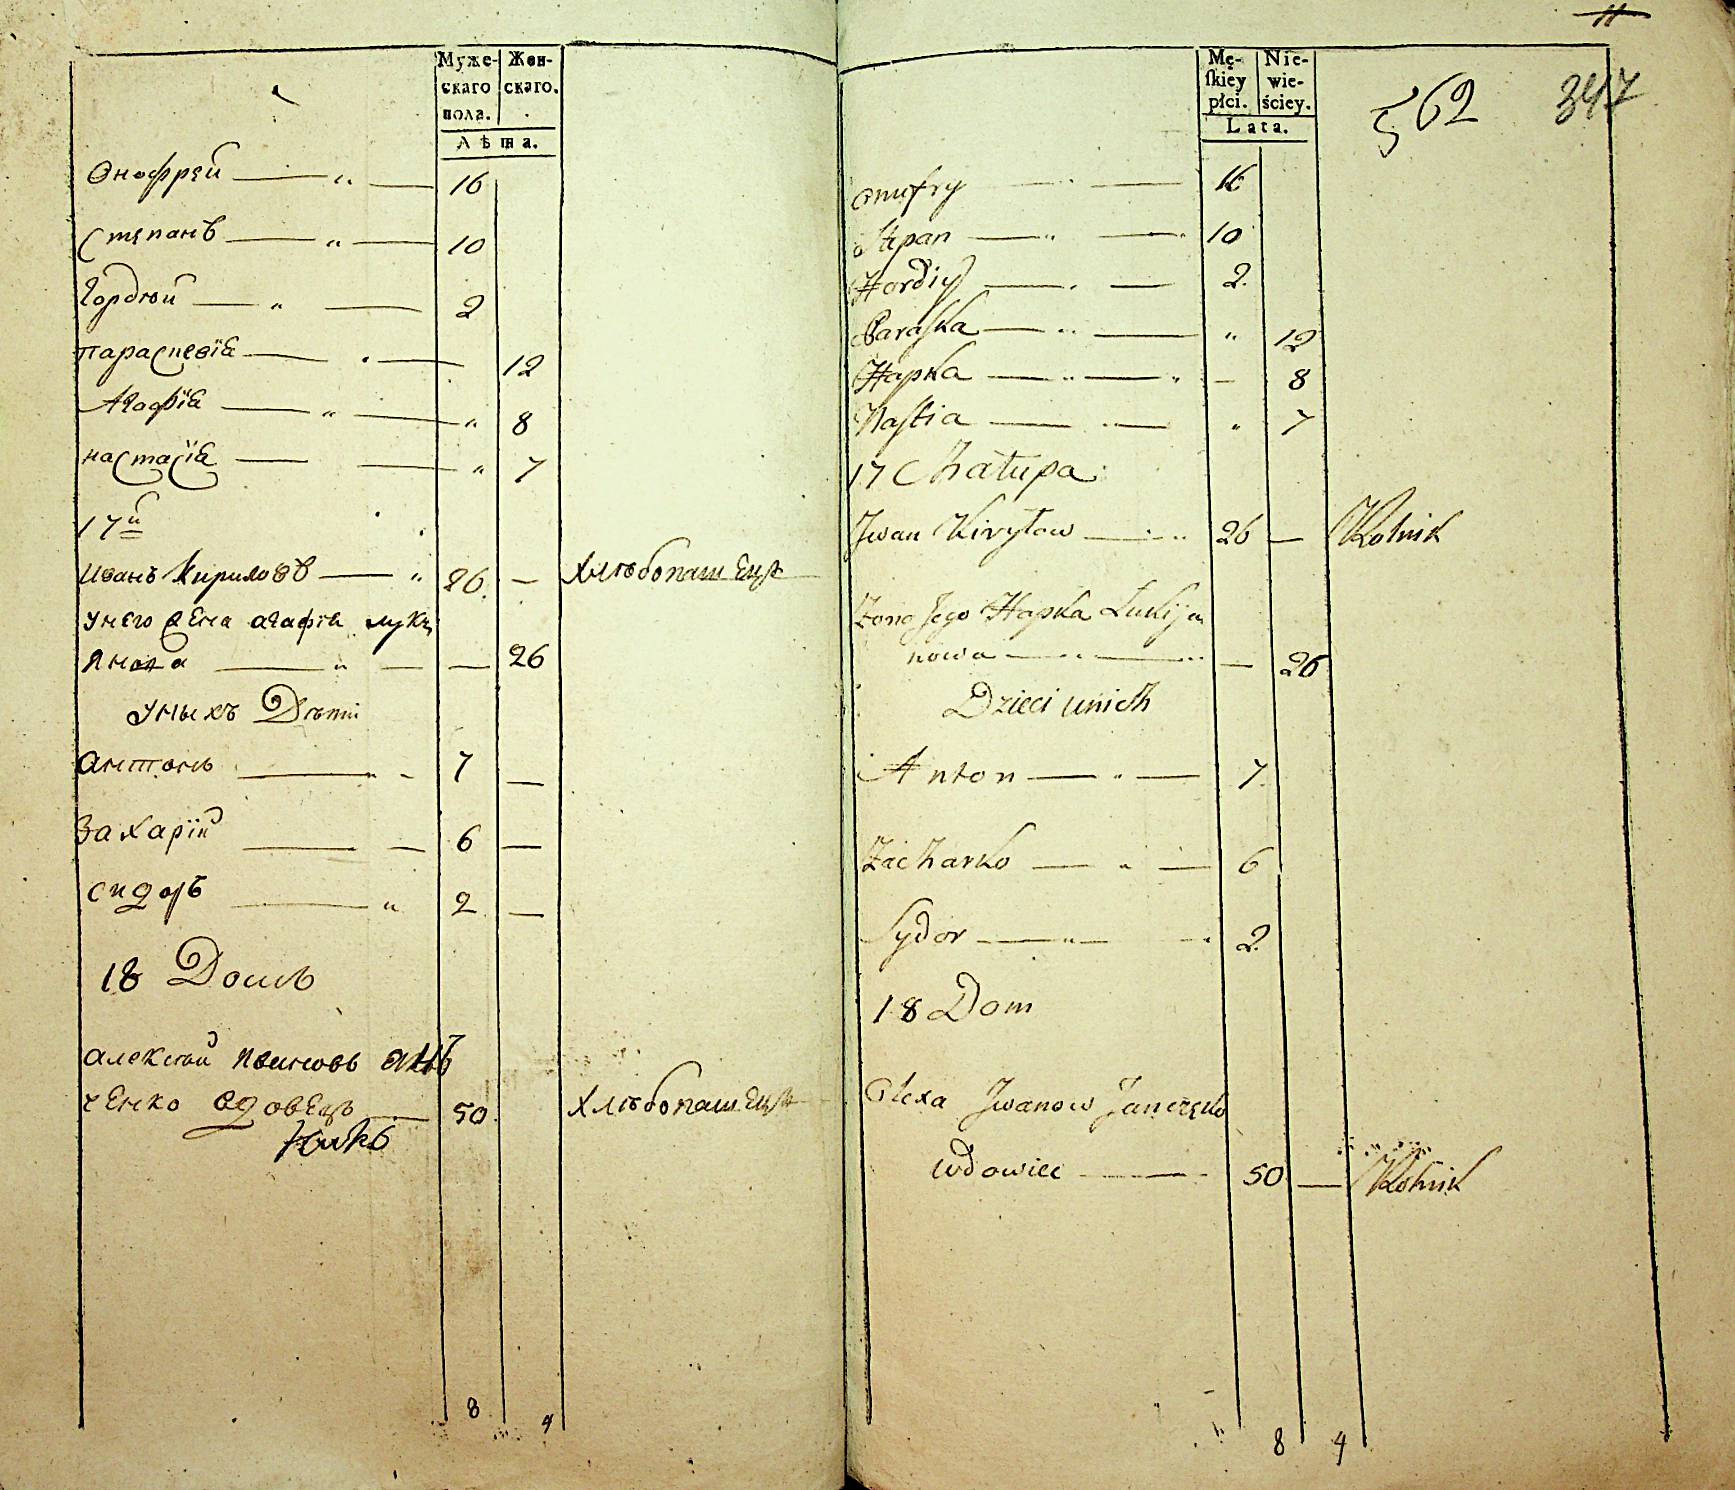 Муже- Жен-
скаго скаго.
пола.
Лѣта.
Онофрей 16
Степанъ 10
Гордѣй 2
Параскевїа 12
Агафїа 8
Настасїа 7
17й
Иванъ Кириловъ 26 — Хлѣбопашецъ
У него жена Агафїа Луки
янова — 26
У ныхъ Дѣти
Антонъ 7 —
Захарїй 6 —
Сидоръ 2 —
18 Домъ
Алексѣй Ивановъ Ян
ченко вдовецъ 50 Хлѣбопашецъ
8 4
11
Mę- Nie-
ſkiey wie-
płci. ściey.
Lata.
562 347
Onufry 16
Stepan 10
Hordiy 2
Paraſka 12
Hapka — 8
Naſtia 7
17 Chałupa
Jwan Kiryłow 26 — Rolnik
Żona Jego Hapka Łukija
nowa — 26
Dzieci unich
Anton 7
Zacharko 6
Sydor 2
18 Dom
Olexa Jwanow Janczęko
wdowiec 50 — Rolnik
8 4